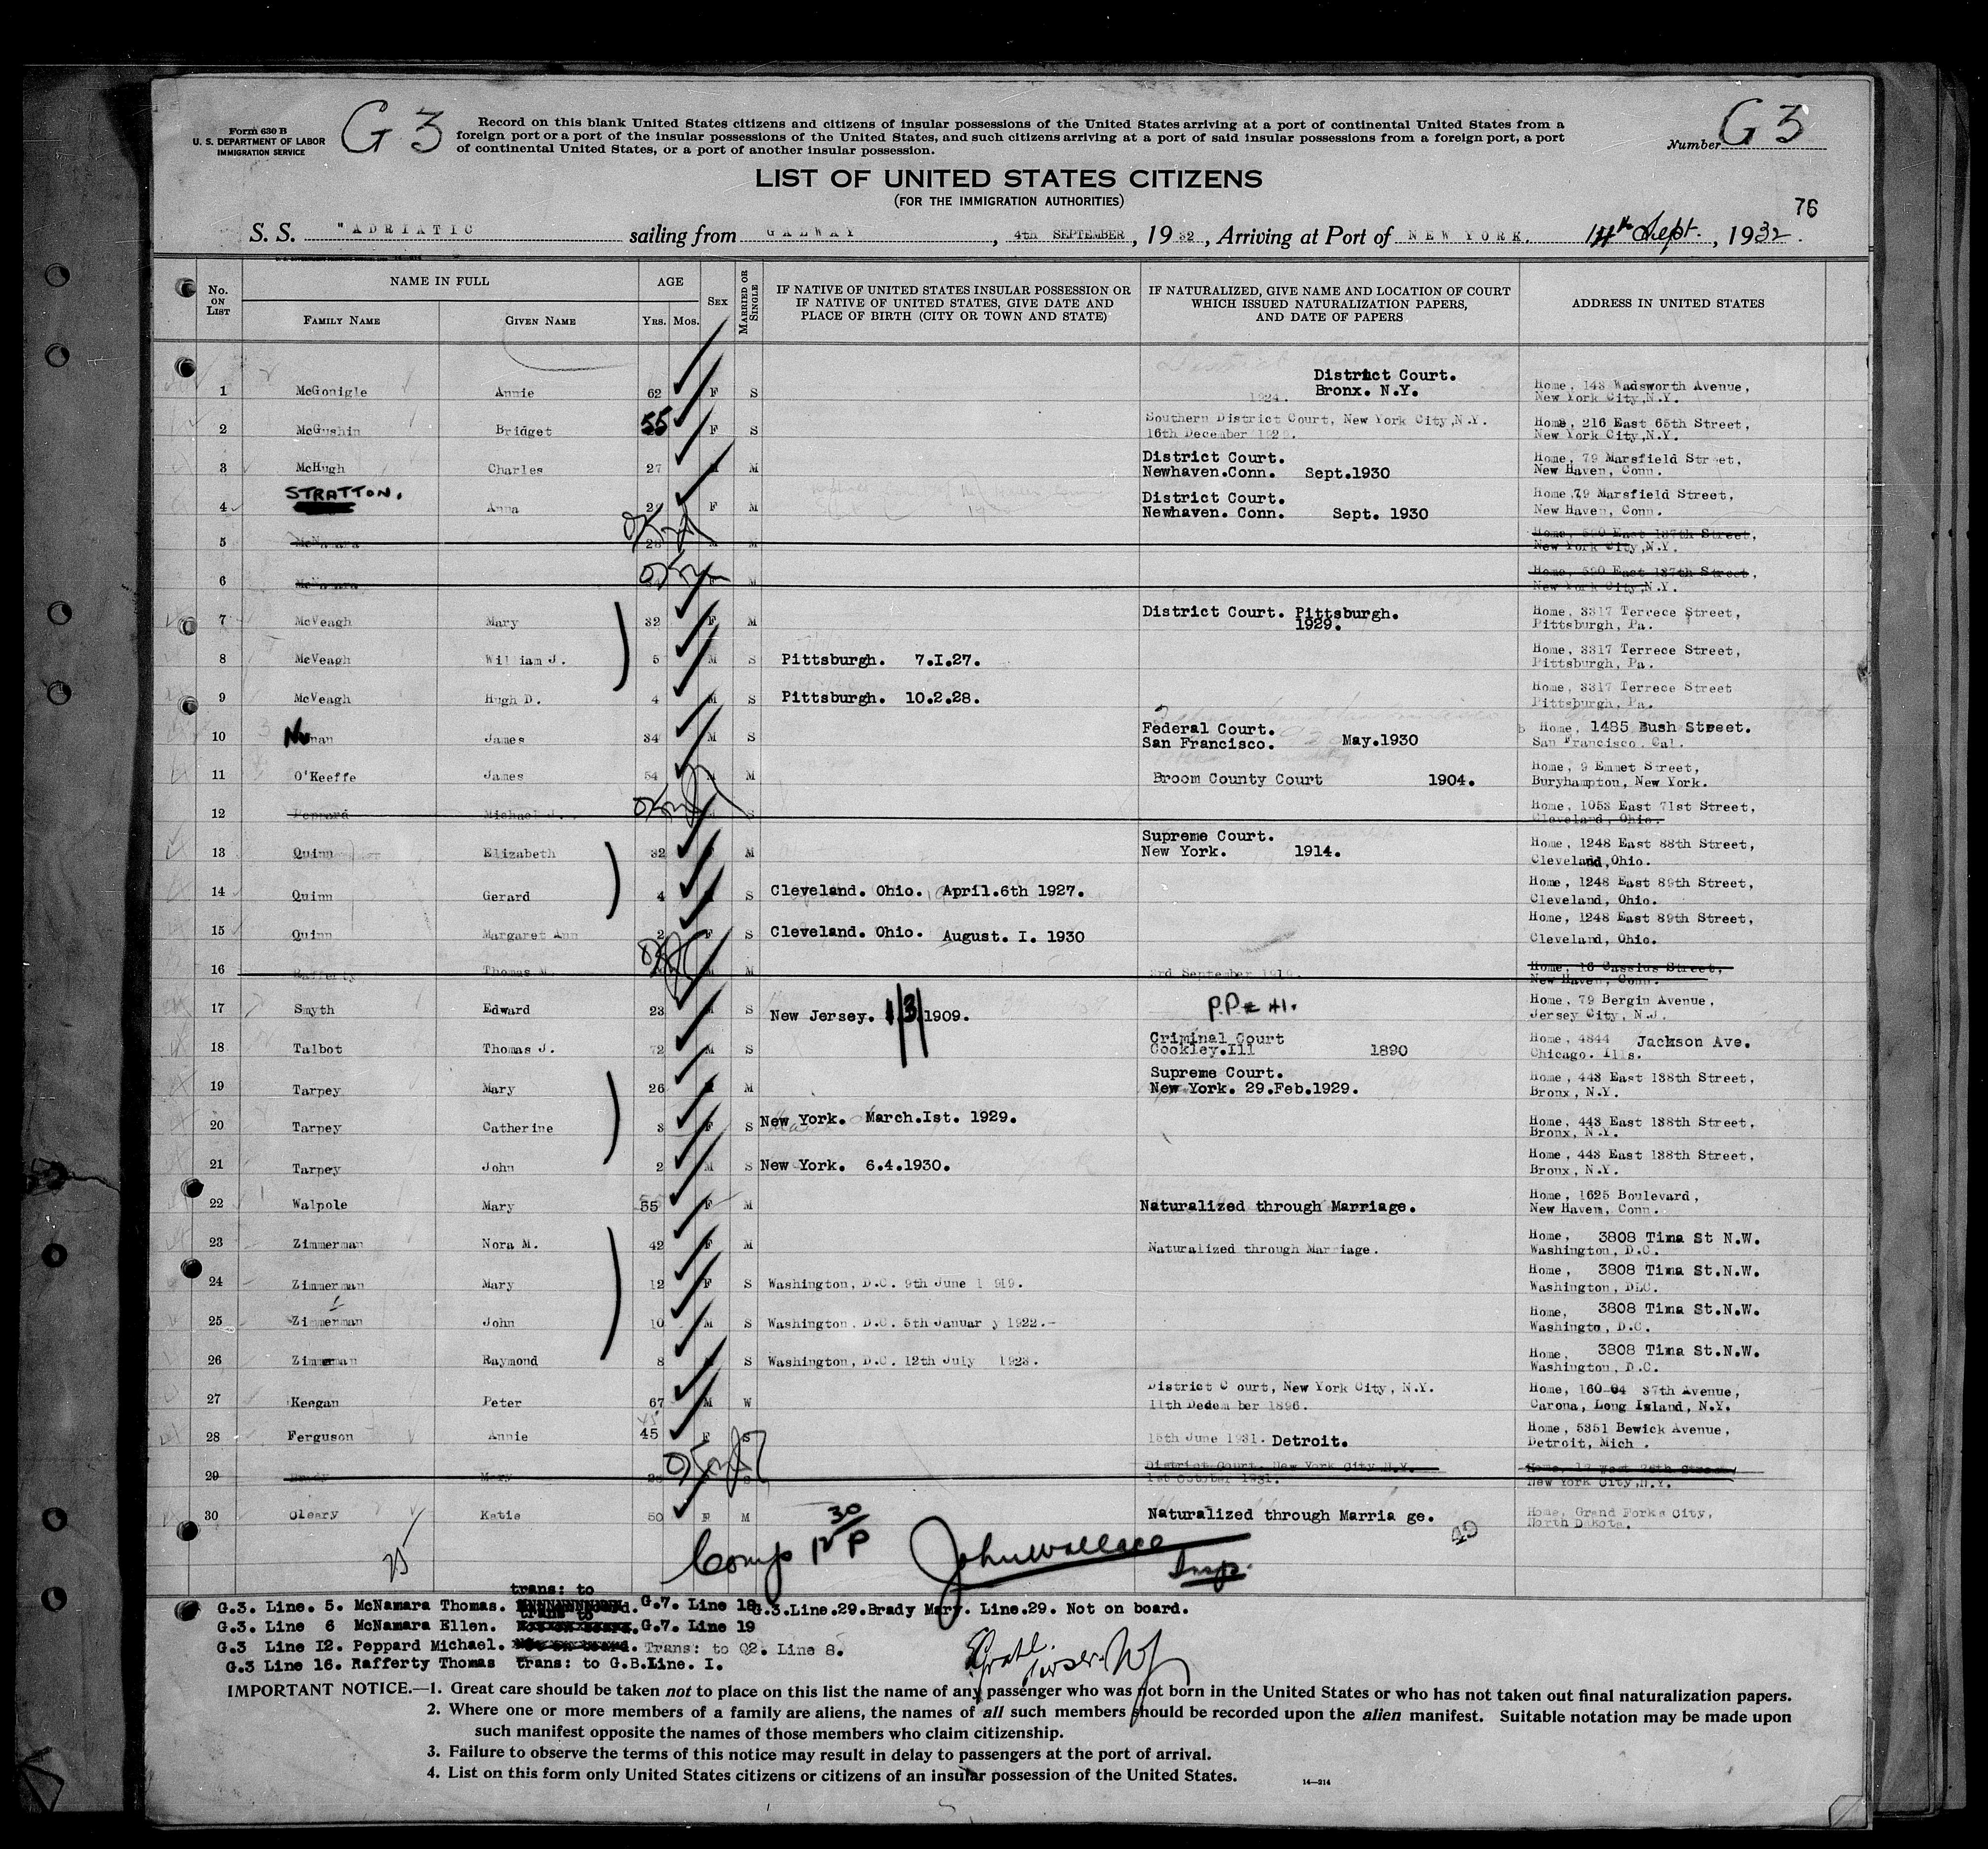 Form 630 B
U. S. DEPARTMENT OF LABOR
IMMIGRATION SERVICE
G 3
Record on this blank United States citizens and citizens of insular possessions of the United States arriving at a port of continental United States from a
foreign port or a port of the insular possessions of the United States, and such citizens arriving at a port of said insular possessions from a foreign port, a port
of continental United States, or a port of another insular possession.
Number G 3
LIST OF UNITED STATES CITIZENS
(FOR THE IMMIGRATION AUTHORITIES)
76
S. S. "ADRIATIC sailing from GALWAY, 4th SEPTEMBER, 1932, Arriving at Port of NEW YORK. 11th Sept., 1932.
No. ON LIST
NAME IN FULL
FAMILY NAME
GIVEN NAME
AGE
YRS. MOS.
SEX
MARRIED OR SINGLE
IF NATIVE OF UNITED STATES INSULAR POSSESSION OR
IF NATIVE OF UNITED STATES, GIVE DATE AND
PLACE OF BIRTH (CITY OR TOWN AND STATE)
IF NATURALIZED, GIVE NAME AND LOCATION OF COURT
WHICH ISSUED NATURALIZATION PAPERS,
AND DATE OF PAPERS
ADDRESS IN UNITED STATES
1 McGonigle Annie 62 F S 1924. District Court. Bronx. N.Y. Home, 143 Wadsworth Avenue, New York City,N.Y.
2 McGushin Bridget 55 F S Southern District Court, New York City,N.Y. 16th December Home, 216 East 65th Street, New York City,N.Y.
3 McHugh Charles 27 M M District Court. Newhaven.Conn. Sept.1930 Home, 79 Marsfield Street, New Haven, Conn.
4 STRATTON. Anna F M District Court. Newhaven. Conn. Sept. 1930 Home,79 Marsfield Street, New Haven, Conn.
5 McNamara M Home, 590 East 137th Street, New York City,N.Y.
6 McNamara F M Home, 590 East 137th Street, New York City,N.Y.
7 McVeagh Mary 32 F M District Court. Pittsburgh. 1929. Home, 3317 Terrece Street, Pittsburgh, Pa.
8 McVeagh William J. 5 M S Pittsburgh. 7.I.27. Home, 3317 Terrece Street, Pittsburgh, Pa.
9 McVeagh Hugh D. 4 M S Pittsburgh. 10.2.28. Home, 3317 Terrece Street Pittsburgh, Pa.
10 Nunan James 34 M S Federal Court. San Francisco. May.1930 Home, 1485 Bush Street. San Francisco. Cal.
11 O'Keeffe James 54 M M Broom County Court 1904. Home, 9 Emmet Street, Buryhampton, New York.
12 Peppard Michael J. S Home, 1053 East 71st Street, Cleveland, Ohio.
13 Quinn Elizabeth 32 M Supreme Court. New York. 1914. Home, 1248 East 88th Street, Cleveland,Ohio.
14 Quinn Gerard 4 S Cleveland. Ohio. April.6th 1927. Home, 1248 East 89th Street, Cleveland, Ohio.
15 Quinn Margaret Ann 2 F S Cleveland. Ohio. August. I. 1930 Home, 1248 East 89th Street, Cleveland, Ohio.
16 Rafferty Thomas M. M M 3rd September Home, 16 Cassius Street, New Haven, Conn.
17 Smyth Edward 23 S New Jersey. 1/3/1909. Home, 79 Bergin Avenue, Jersey City, N.J.
18 Talbot Thomas J. 72 M S Criminal Court Cookley.Ill 1890 Home, 4844 Jackson Ave. Chicago. Ills.
19 Tarpey Mary 26 M Supreme Court. New York. 29.Feb.1929. Home, 443 East 138th Street, Bronx, N.Y.
20 Tarpey Catherine 3 F S New York. March.Ist. 1929. Home, 443 East 138th Street, Bronx, N.Y.
21 Tarpey John 2 M S New York. 6.4.1930. Home, 443 East 138th Street, Bronx, N.Y.
22 Walpole Mary 55 F M Naturalized through Marriage. Home, 1625 Boulevard, New Haven, Conn.
23 Zimmerman Nora M. 42 F M Naturalized through Marriage. Home, 3808 Tima St N.W. Washington, D.C.
24 Zimmerman Mary 12 F S Washington, D.C. 9th June 1919. Home, 3808 Tima St.N.W. Washington, DLC.
25 Zimmerman John 10 M S Washington, D.C. 5th January 1922.- Home, 3808 Tima St.N.W. Washingto, D.C.
26 Zimmerman Raymond 8 S Washington, D.C. 12th July 1923. Home, 3808 Tima St.N.W. Washington, D.C.
27 Keegan Peter 67 M W District Court, New York City, N.Y. 11th Dedember 1896. Home, 160-64 37th Avenue, Carona, Long Island, N.Y.
28 Ferguson Annie 45 F S 15th June 1931. Detroit. Home, 5351 Bewick Avenue, Detroit, Mich.
29 Brady Mary S District Court, New York City N.Y. 1st October 1931. New York City,N.Y.
30 Oleary Katie 50 F M Naturalized through Marriage. Home, Grand Forks City, North Dakota.
25
Comp 12 30 P John Wallace Insp.
G.3. Line. 5. McNamara Thomas. trans: to G.7. Line 18
G.3.Line.29.Brady Mary. Line.29. Not on board.
G.3. Line 6 McNamara Ellen. trans to G.7. Line 19
G.3 Line I2. Peppard Michael. Not on board. Trans: to Q2. Line 8.
G.3 Line 16. Rafferty Thomas trans: to G.B.Line. I.
IMPORTANT NOTICE.—1. Great care should be taken not to place on this list the name of any passenger who was not born in the United States or who has not taken out final naturalization papers.
2. Where one or more members of a family are aliens, the names of all such members should be recorded upon the alien manifest. Suitable notation may be made upon
such manifest opposite the names of those members who claim citizenship.
3. Failure to observe the terms of this notice may result in delay to passengers at the port of arrival.
4. List on this form only United States citizens or citizens of an insular possession of the United States.
14—214